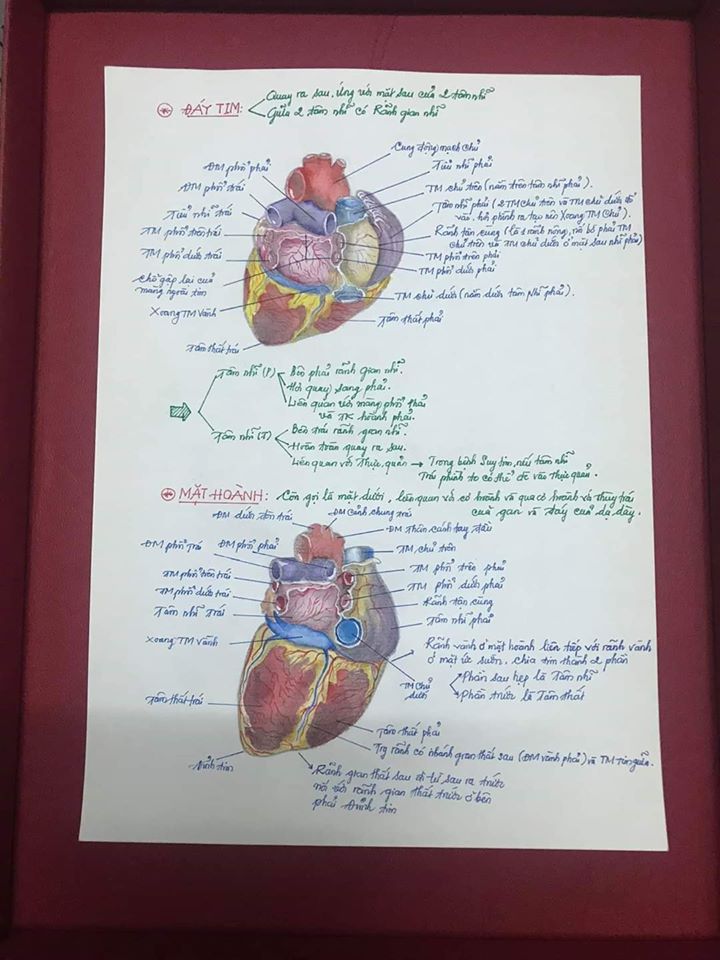 * ĐÁY TIM:
Quay ra sau, ứng với mặt sau của 2 tâm nhĩ
Giữa 2 tâm nhĩ có Rãnh gian nhĩ
Cung động mạch chủ
Tiểu nhĩ phải
TM chủ trên (nằm trên tâm nhĩ phải).
Tâm nhĩ phải (2 TM chủ trên và TM chủ dưới đổ
vào, hơi phình ra tạo nên Xoang TM Chủ).
Rãnh tận cùng (là 1 rãnh nông, nối bờ phải TM
chủ trên và TM chủ dưới ở mặt sau nhĩ phải)
TM phổi trên phải
TM phổi dưới phải
TM chủ dưới (nằm dưới tâm Nhĩ phải).
Tâm thất phải
ĐM phổi phải
ĐM phổi trái
Tiểu nhĩ trái
TM phổi trên trái
TM phổi dưới trái
Chỗ gấp lại của
màng ngoài tim
Xoang TM Vành
Tâm thất trái
Tâm nhĩ (P)
Bên phải rãnh gian nhĩ.
Hơi quay sang phải.
Liên quan với màng phổi phải
và TK hoành phải.
Tâm nhĩ (T)
Bên trái rãnh gian nhĩ.
Hoàn toàn quay ra sau.
Liên quan với Thực quản → Trong bệnh Suy tim, nếu tâm nhĩ
Trái phình to có thể đè vào thực quản.
* MẶT HOÀNH: Còn gọi là mặt dưới, liên quan với cơ hoành và qua cơ hoành và thùy trái
của gan và đáy của dạ dày.
ĐM dưới đòn trái
ĐM Cảnh chung trái
ĐM Thân cánh tay đầu
TM chủ trên
TM phổi trên phải
TM phổi dưới phải
Rãnh tận cùng
Tâm nhĩ phải
ĐM phổi Trái
ĐM phổi phải
TM phổi trên trái
TM phổi dưới trái
Tâm nhĩ Trái
Xoang TM Vành
Rãnh vành ở mặt hoành liên tiếp với rãnh vành
ở mặt ức sườn, chia tim thành 2 phần
Phần sau hẹp là Tâm nhĩ
Phần trước là Tâm thất
TM Chủ
dưới
Tâm thất trái
Tâm thất phải
Trg rãnh có nhánh gian thất sau (ĐM vành phải) và TM Tim giữa.
Đỉnh tim
Rãnh gian thất sau đi từ sau ra trước
nối với rãnh gian thất trước ở bên
phải đỉnh tim